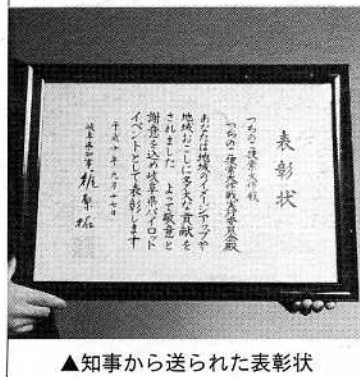 表彰状
つちのこ捜索大作戦
つちのこ捜索大作戦実行委員会殿
あなたは地域のイメージアップや
地域おこしに多大な貢献を
されました よって敬意と
謝意を込め岐阜県パイロット
イベントとして表彰します
平成十年九月十七日
岐阜県知事 梶原拓
▲知事から送られた表彰状